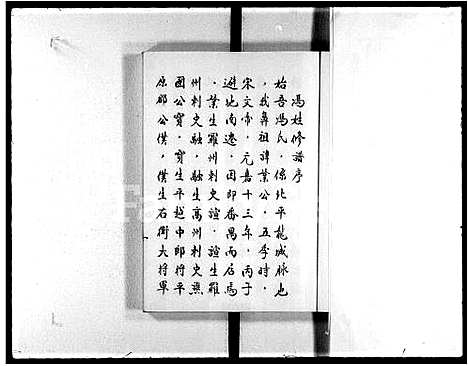 馮姓修譜序
始吾馮氏，係北平龍城脉也
，我鼻祖諱業公，五季時，
宋文帝，元嘉十三年，丙子
避地南遼，因即番禺而居焉
。業生羅州刺史諠，諠生羅
州刺史融，融生高州刺史兼
國公寶，寶生平越中郎將平
原郡公僕，僕生右衛大將軍